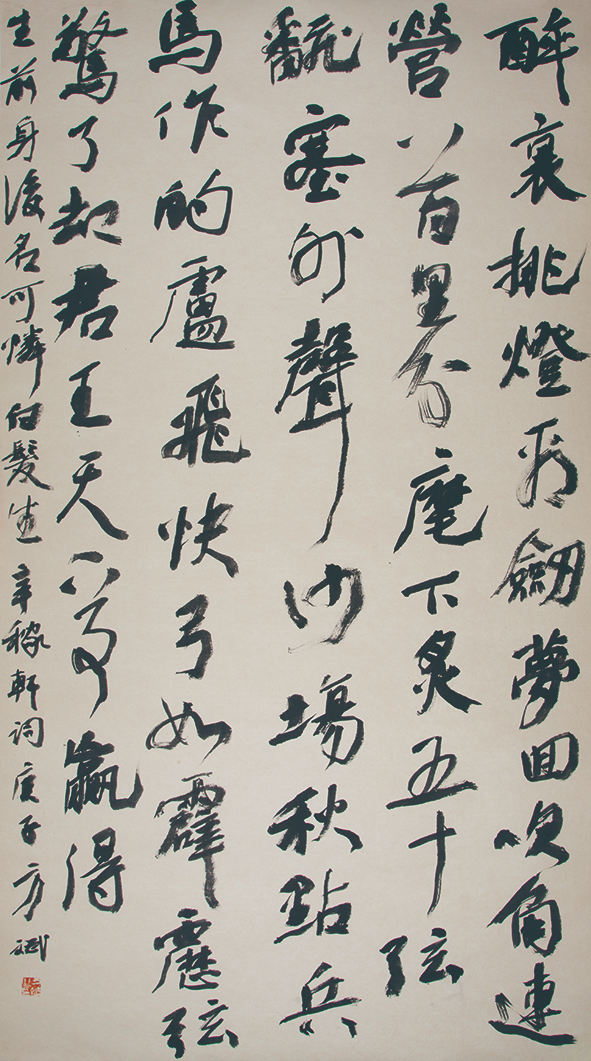 醉裏挑燈看劔夢回吹角連
營八百里分麾下炙五十弦
翻塞外聲沙場秋點兵
馬作的盧飛快弓如霹靂弦
驚了却君王天下事贏得
生前身後名可憐白髮生 辛稼軒詞 庚子方斌